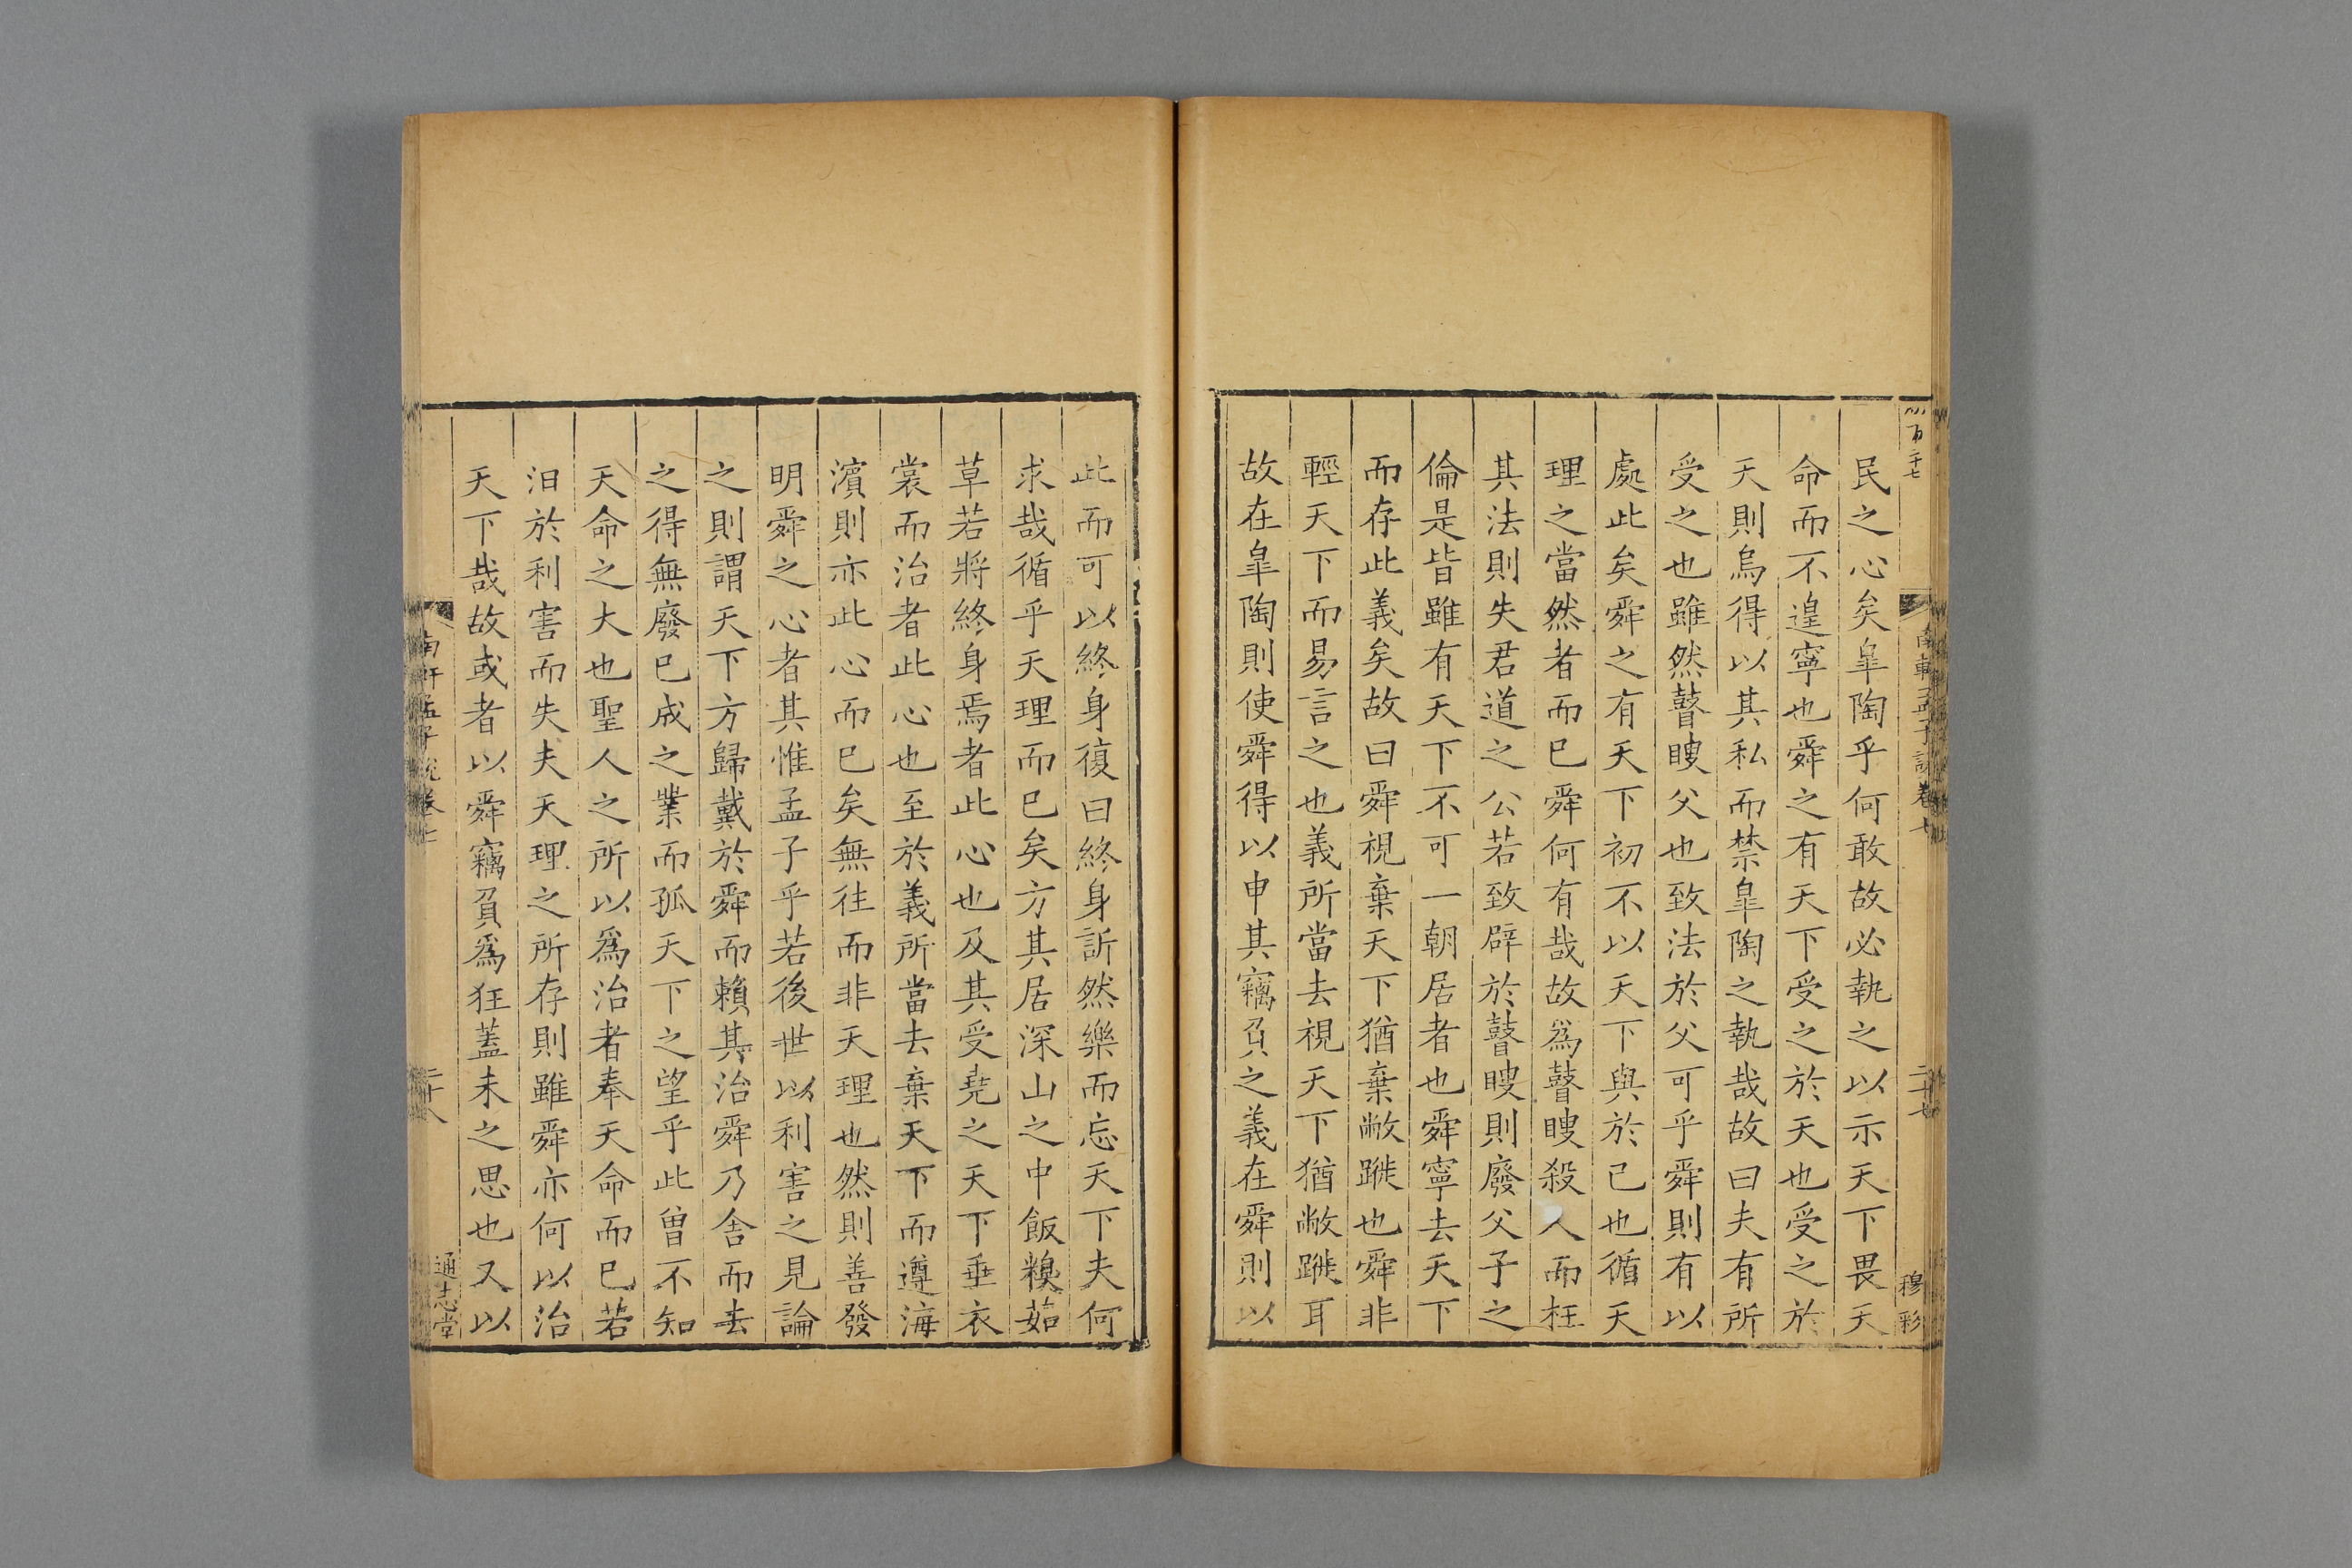 民之心矣臯陶乎何敢故必執之以示天下畏天
命而不遑寧也舜之有天下受之於天也受之於
天則烏得以其私而禁臯陶之執哉故曰夫有所
受之也雖然瞽瞍父也致法於父可乎舜則有以
處此矣舜之有天下初不以天下與於己也循天
理之當然者而已舜何有哉故爲瞽瞍殺人而枉
其法則失君道之公若致辟於瞽瞍則廢父子之
倫是皆雖有天下不可一朝居者也舜寧去天下
而存此義矣故曰舜視棄天下猶棄敝蹝也舜非
輕天下而易言之也義所當去視天下猶敝蹝耳
故在臯陶則使舜得以申其竊負之義在舜則以
南軒孟子說卷七
二十七
穆彩
此而可以終身復曰終身訢然樂而忘天下夫何
求哉循乎天理而已矣方其居深山之中飯糗茹
草若將終身焉者此心也及其受堯之天下垂衣
裳而治者此心也至於義所當去棄天下而遵海
濱則亦此心而已矣無往而非天理也然則善發
明舜之心者其惟孟子乎若後世以利害之見論
之則謂天下方歸戴於舜而賴其治舜乃舍而去
之得無廢已成之業而孤天下之望乎此曾不知
天命之大也聖人之所以爲治者奉天命而已若
汨於利害而失夫天理之所存則雖舜亦何以治
天下哉故或者以舜竊負爲狂蓋未之思也又以
南軒孟子說卷七
二十八
通志堂